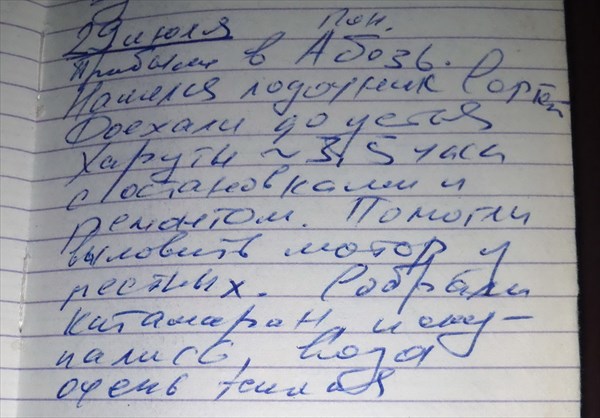 29 июля Пон.
Прибыли в Абезь.
Нашелся лодочник Сергей
Доехали до устья
Харуты ~ 3,5 часа
с остановками и
ремонтом. Помогли
выловить мотор у
местных. Собрали
катамаран, иску-
пались, вода
очень теплая